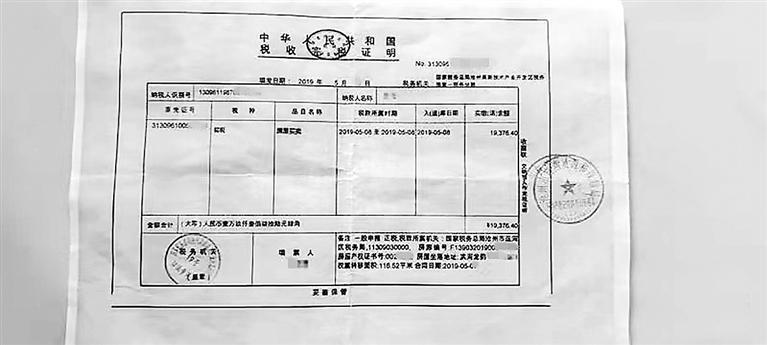 中华人民共和国
税收完税证明
No. 313095
填发日期：2019 年 5月
税务机关：
国家税务总局沧州高新技术产业开发区税务
纳税人识别号
1309811987
纳税人名称
原凭证号 税 种 品目名称 税款所属时期 入(退)库日期 实缴(退)金额
3130961000 契税 房屋买卖 2019-05-08 至 2019-05-08 2019-05-08 19,376.40
收据联 交纳税人作完税证明
金额合计 (大写) 人民币壹万玖仟叁佰柒拾陆元肆角 ¥19,376.40
税务机关
(盖章)
填 票 人
备注 一般申报 正税,税款所属机关：国家税务总局沧州市运河
区税务局,11309030000, 房源编号:F13903201900
房屋产权证书号:00 房屋坐落地址:
权属转移面积:116.52平米 合同日期:2019-05-0
妥善保管